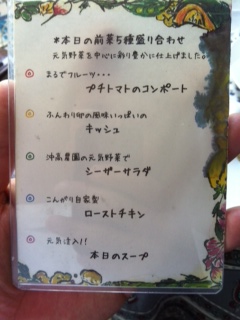 *本日の前菜5種盛り合わせ
元気野菜を中心に彩り豊かに仕上げましたが
まるでフルーツ・・・
プチトマトのコンポート
ふんわり卵の風味いっぱいの
キッシュ
沖高農園の元気野菜で
シーザーサラダ
こんがり自家製
ローストチキン
元気注入!!
本日のスープ